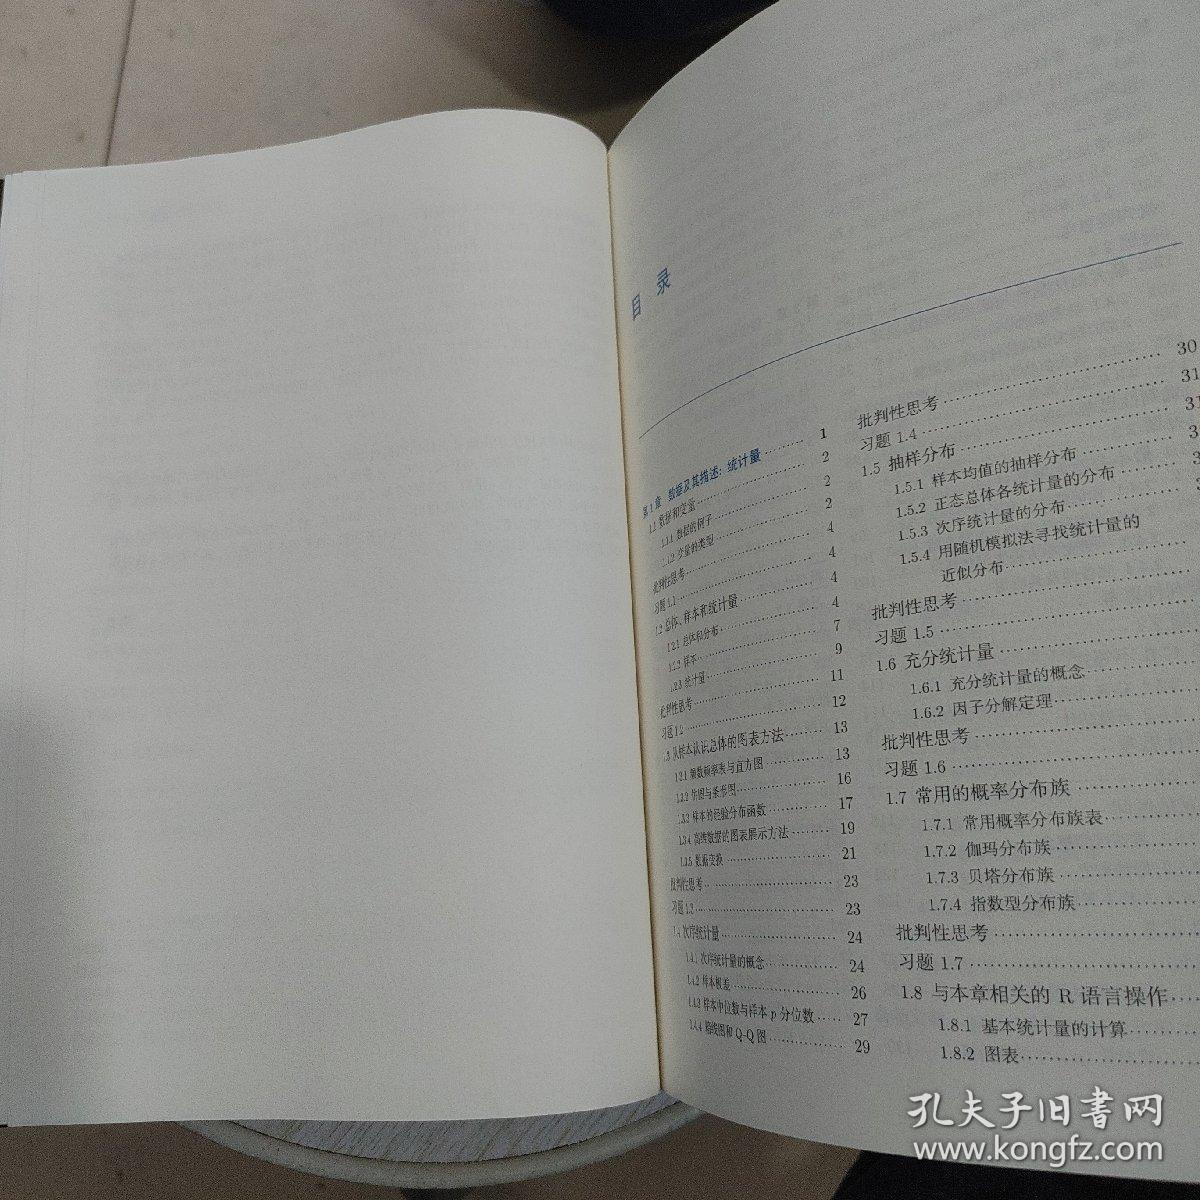 目 录
第1章 数据及其描述：统计量 1
1.1 数据和变量 2
1.1.1 数据的例子 2
1.1.2 变量的类型 2
批判性思考 4
习题 1.1 4
1.2 总体、样本和统计量 4
1.2.1 总体和分布 4
1.2.2 样本 7
1.2.3 统计量 9
批判性思考 11
习题 1.2 12
.3 从样本认识总体的图表方法 13
频数频率表与直方图 13
1.3.2 饼图与条形图 16
1.3.3 样本的经验分布函数 17
1.3.4 高维数据的图表展示方法 19
1.3.5 数据变换 21
批判性思考 23
习题 1.3 23
1.4 次序统计量 24
1.4.1 次序统计量的概念 24
1.4.2 样本极差 26
1.4.3 样本中位数与样本 p 分位数 27
1.4.4 箱线图和 Q-Q 图 29
批判性思考 30
习题 1.4 31
1.5 抽样分布 31
1.5.1 样本均值的抽样分布
1.5.2 正态总体各统计量的分布
1.5.3 次序统计量的分布
1.5.4 用随机模拟法寻找统计量的
近似分布
批判性思考
习题 1.5
1.6 充分统计量
1.6.1 充分统计量的概念
1.6.2 因子分解定理
批判性思考
习题 1.6
1.7 常用的概率分布族
1.7.1 常用概率分布族表
1.7.2 伽玛分布族
1.7.3 贝塔分布族
1.7.4 指数型分布族
批判性思考
习题 1.7
1.8 与本章相关的 R 语言操作
1.8.1 基本统计量的计算
1.8.2 图表
孔夫子旧书网
www.kongfz.com